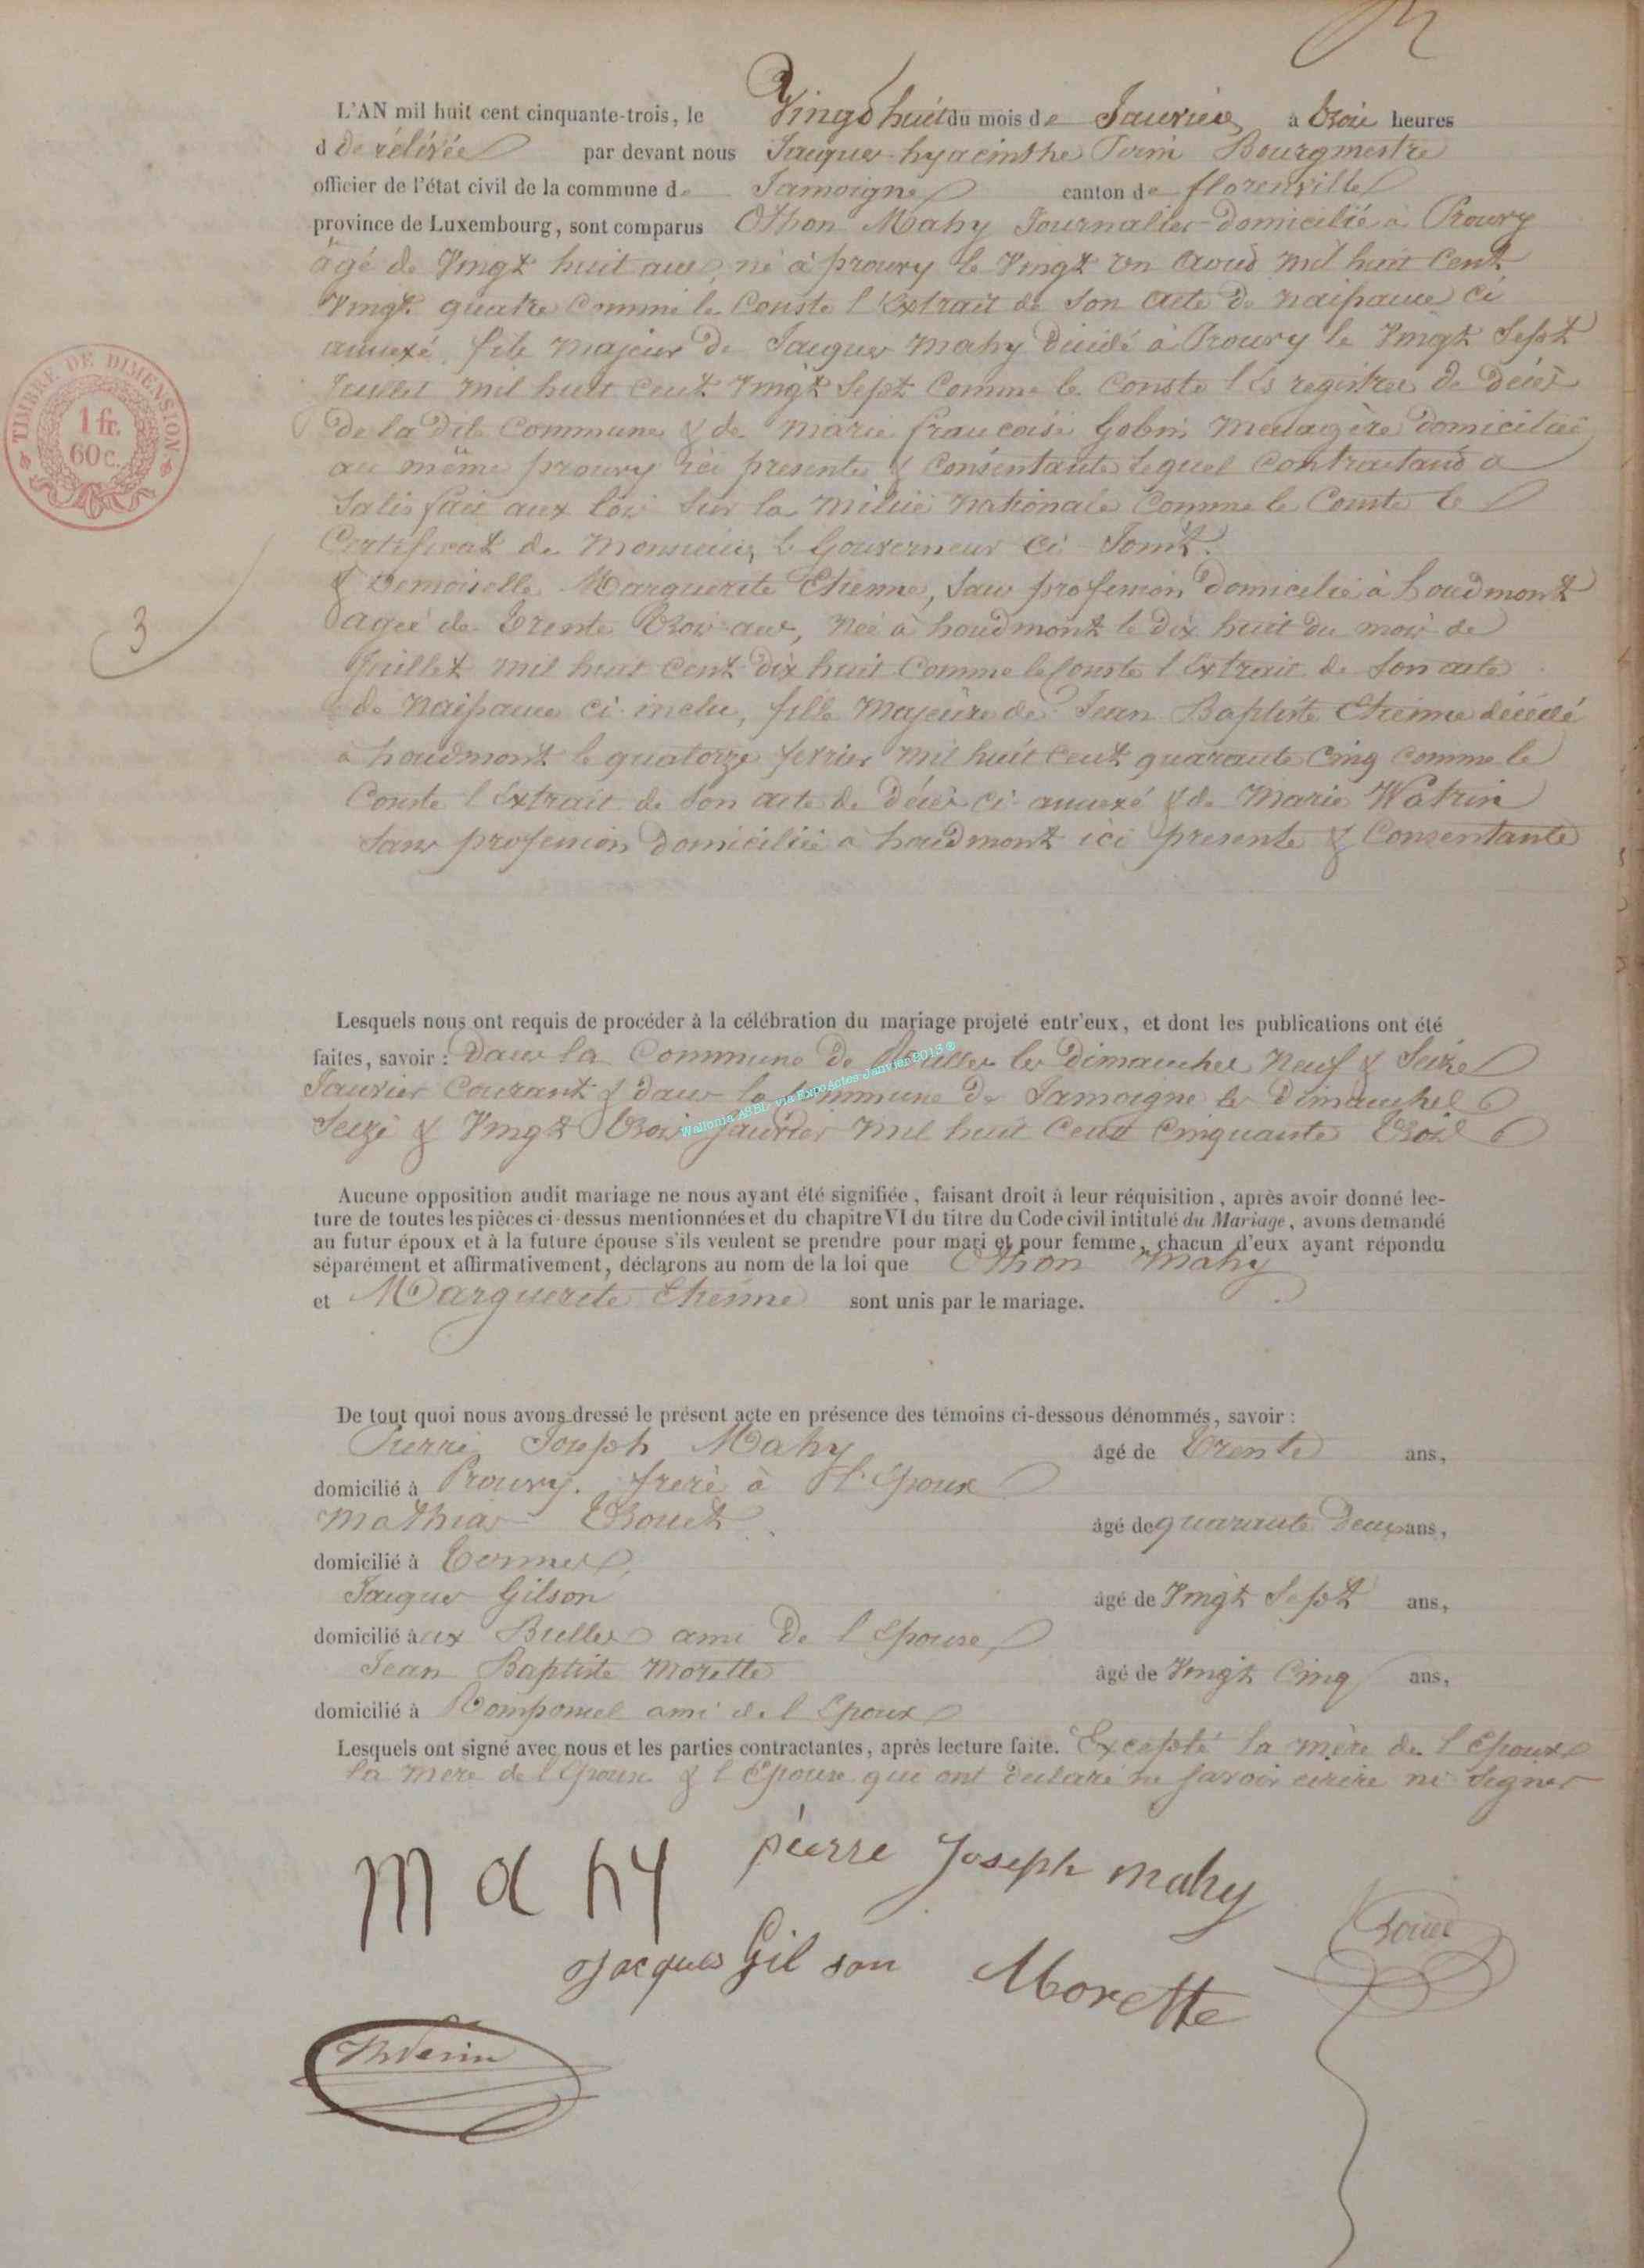 L'AN mil huit cent cinquante-trois, le Vingt huit du mois de Janvier à trois heures
d de rélévée par devant nous Jacques hyacinthe Bourgmestre
officier de l'état civil de la commune de Jamoigne canton de florenville
province de Luxembourg, sont comparus Othon Mahy Journalier domicilié à Prouvy
âgé de Vingt huit ans, né à prouvy le Vingt un aoud mil huit Cent
Vingt quatre comme le Conste l Extrait de son acte de naissance ci
annexé, fils majeur de Jacques Mahy décédé à Prouvy le Vingt Sept
Juillet mil huit cent Vingt Sept Comme le Conste les registres de décès
de la dite Commune & de marie francoise Gobin Menagère domiciliée
au même prouvy ici presente & Consentante Lequel Contractand a
Satisfait aux lois sur la milice nationale Comme le Conste le
Certificat de Monsieur le Gouverneur ci Joint.
& Demoiselle Marguerite Etienne, Sans profession domiciliée à houdmont
agée de Trente trois ans, née à houdmont le dix huit du mois de
Juillet mil huit cent dix huit Comme le Conste l Extrait de Son acte
de naissance ci inclu, fille Majeure de Jean Baptiste Etienne décédé
à houdmont le quatorze fevrier mil huit cent quarante Cinq comme le
Conste l Extrait de son acte de décès ci annexé & de Marie Watrin
Sans profession domiciliée à houdmont ici presente & Consentante
3
TIMBRE DE DIMENSION
1 fr.
60 c.
Lesquels nous ont requis de procéder à la célébration du mariage projeté entr'eux, et dont les publications ont été
faites, savoir : Dans la Commune de les Dimanches Neuf & Seize
Janvier Courant & dans la Commune de Jamoigne les Dimanches
Seize & Vingt trois Janvier mil huit Cent Cinquante trois
Wallonia ASBL via Expoactes Janvier 2015 ®
Aucune opposition audit mariage ne nous ayant été signifiée, faisant droit à leur réquisition, après avoir donné lec-
ture de toutes les pièces ci-dessus mentionnées et du chapitre VI du titre du Code civil intitulé du Mariage, avons demandé
au futur époux et à la future épouse s'ils veulent se prendre pour mari et pour femme, chacun d'eux ayant répondu
séparément et affirmativement, déclarons au nom de la loi que Othon Mahy
et Marguerite Etienne sont unis par le mariage.
De tout quoi nous avons dressé le présent acte en présence des témoins ci-dessous dénommés, savoir :
Pierre Joseph Mahy âgé de Trente ans,
domicilié à Prouvy. frere à l'Epoux
Mathias âgé de quarante Deux ans,
domicilié à
Jacques Gilson âgé de Vingt Sept ans,
domicilié à ux Bulles ami de l Epouse
Jean Baptiste Morette âgé de Vingt Cinq ans,
domicilié à Romponcel ami de l Epoux
Lesquels ont signé avec nous et les parties contractantes, après lecture faite. Excepté la mère de l Epoux
la mere de l Epouse & l Epouse qui ont declaré ne savoir ecrire ni Signer
Mahy pierre Joseph mahy
Jacques Gilson Morette